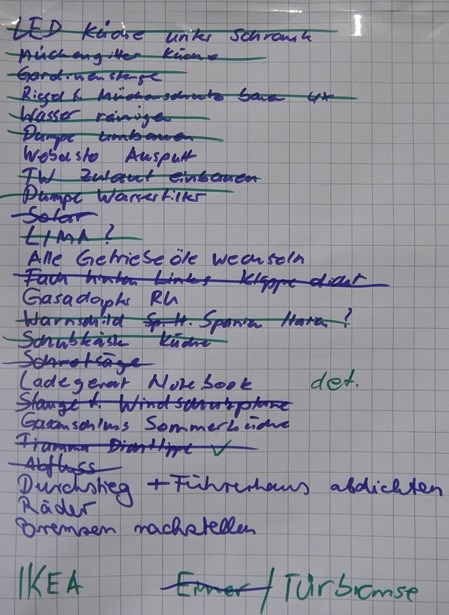 LED Küche unter Schrank
Mückengitter Küche
Gardinenstange
Riegel f. Mückenschutz 4x
Wasser reinigen
Pumpe umbauen
Webasto Auspuff
TW Zulauf einbauen
Pumpe Wasserfilter
Solar
LIMA ?
Alle Getriebeöle wechseln
Fach hinten Links Klappe dicht
Gasadapter RU
Warnschild Sp. H. Spanien ?
Schubkäst. Küche
Ladegerät Notebook def.
Stange f. Windschutzplane
Gasanschluss Sommerküche
✓
Abfluss
Durchstieg + Führerhaus abdichten
Räder
Bremsen nachstellen
IKEA Eimer / Türbremse